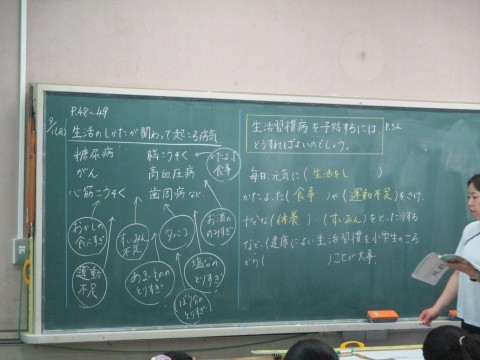 P.48～49
9/1(月)
生活のしかたが関わって起こる病気
糖尿病
がん
心筋こうそく
脳こうそく
高血圧病
歯周病など
かたよった食事
おかしの食べすぎ
すいみん不足
タバコ
お酒ののみすぎ
運動不足
あまいもののとりすぎ
塩分のとりすぎ
しぼう分のとりすぎ
生活習慣病を予防するには、
どうすればよいのでしょう。
P.52
毎日、元気に(生活をし　　)
かたよった(食事)や(運動不足)をさけ、
十分な(休養)・(すいみん)をとったりする
など、(健康によい生活習慣を小学生のころ
から(　　　)ことが大事。